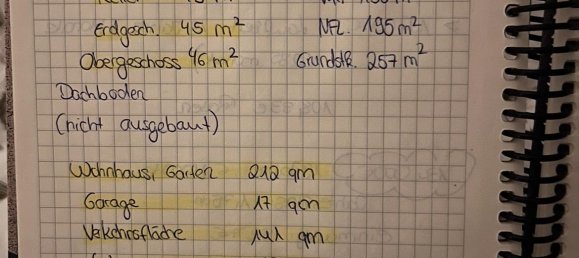 Erdgesch. 45 m² NFL. 195 m²
Obergeschoss 46 m² Grundstk. 257 m²
Dachboden
(nicht ausgebaut)
Wohnhaus, Garten 212 qm
Garage 17 qm
Verkehrsfläche 141 qm